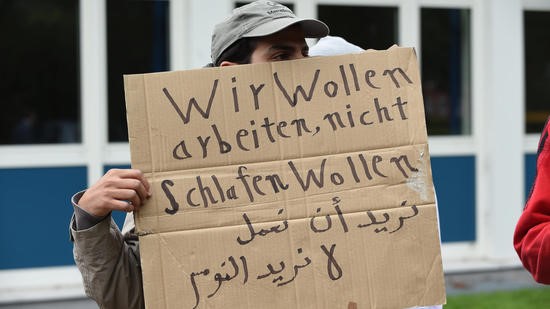 Wir Wollen
arbeiten, nicht
Schlafen Wollen
نريد أن نعمل
لا نريد النوم